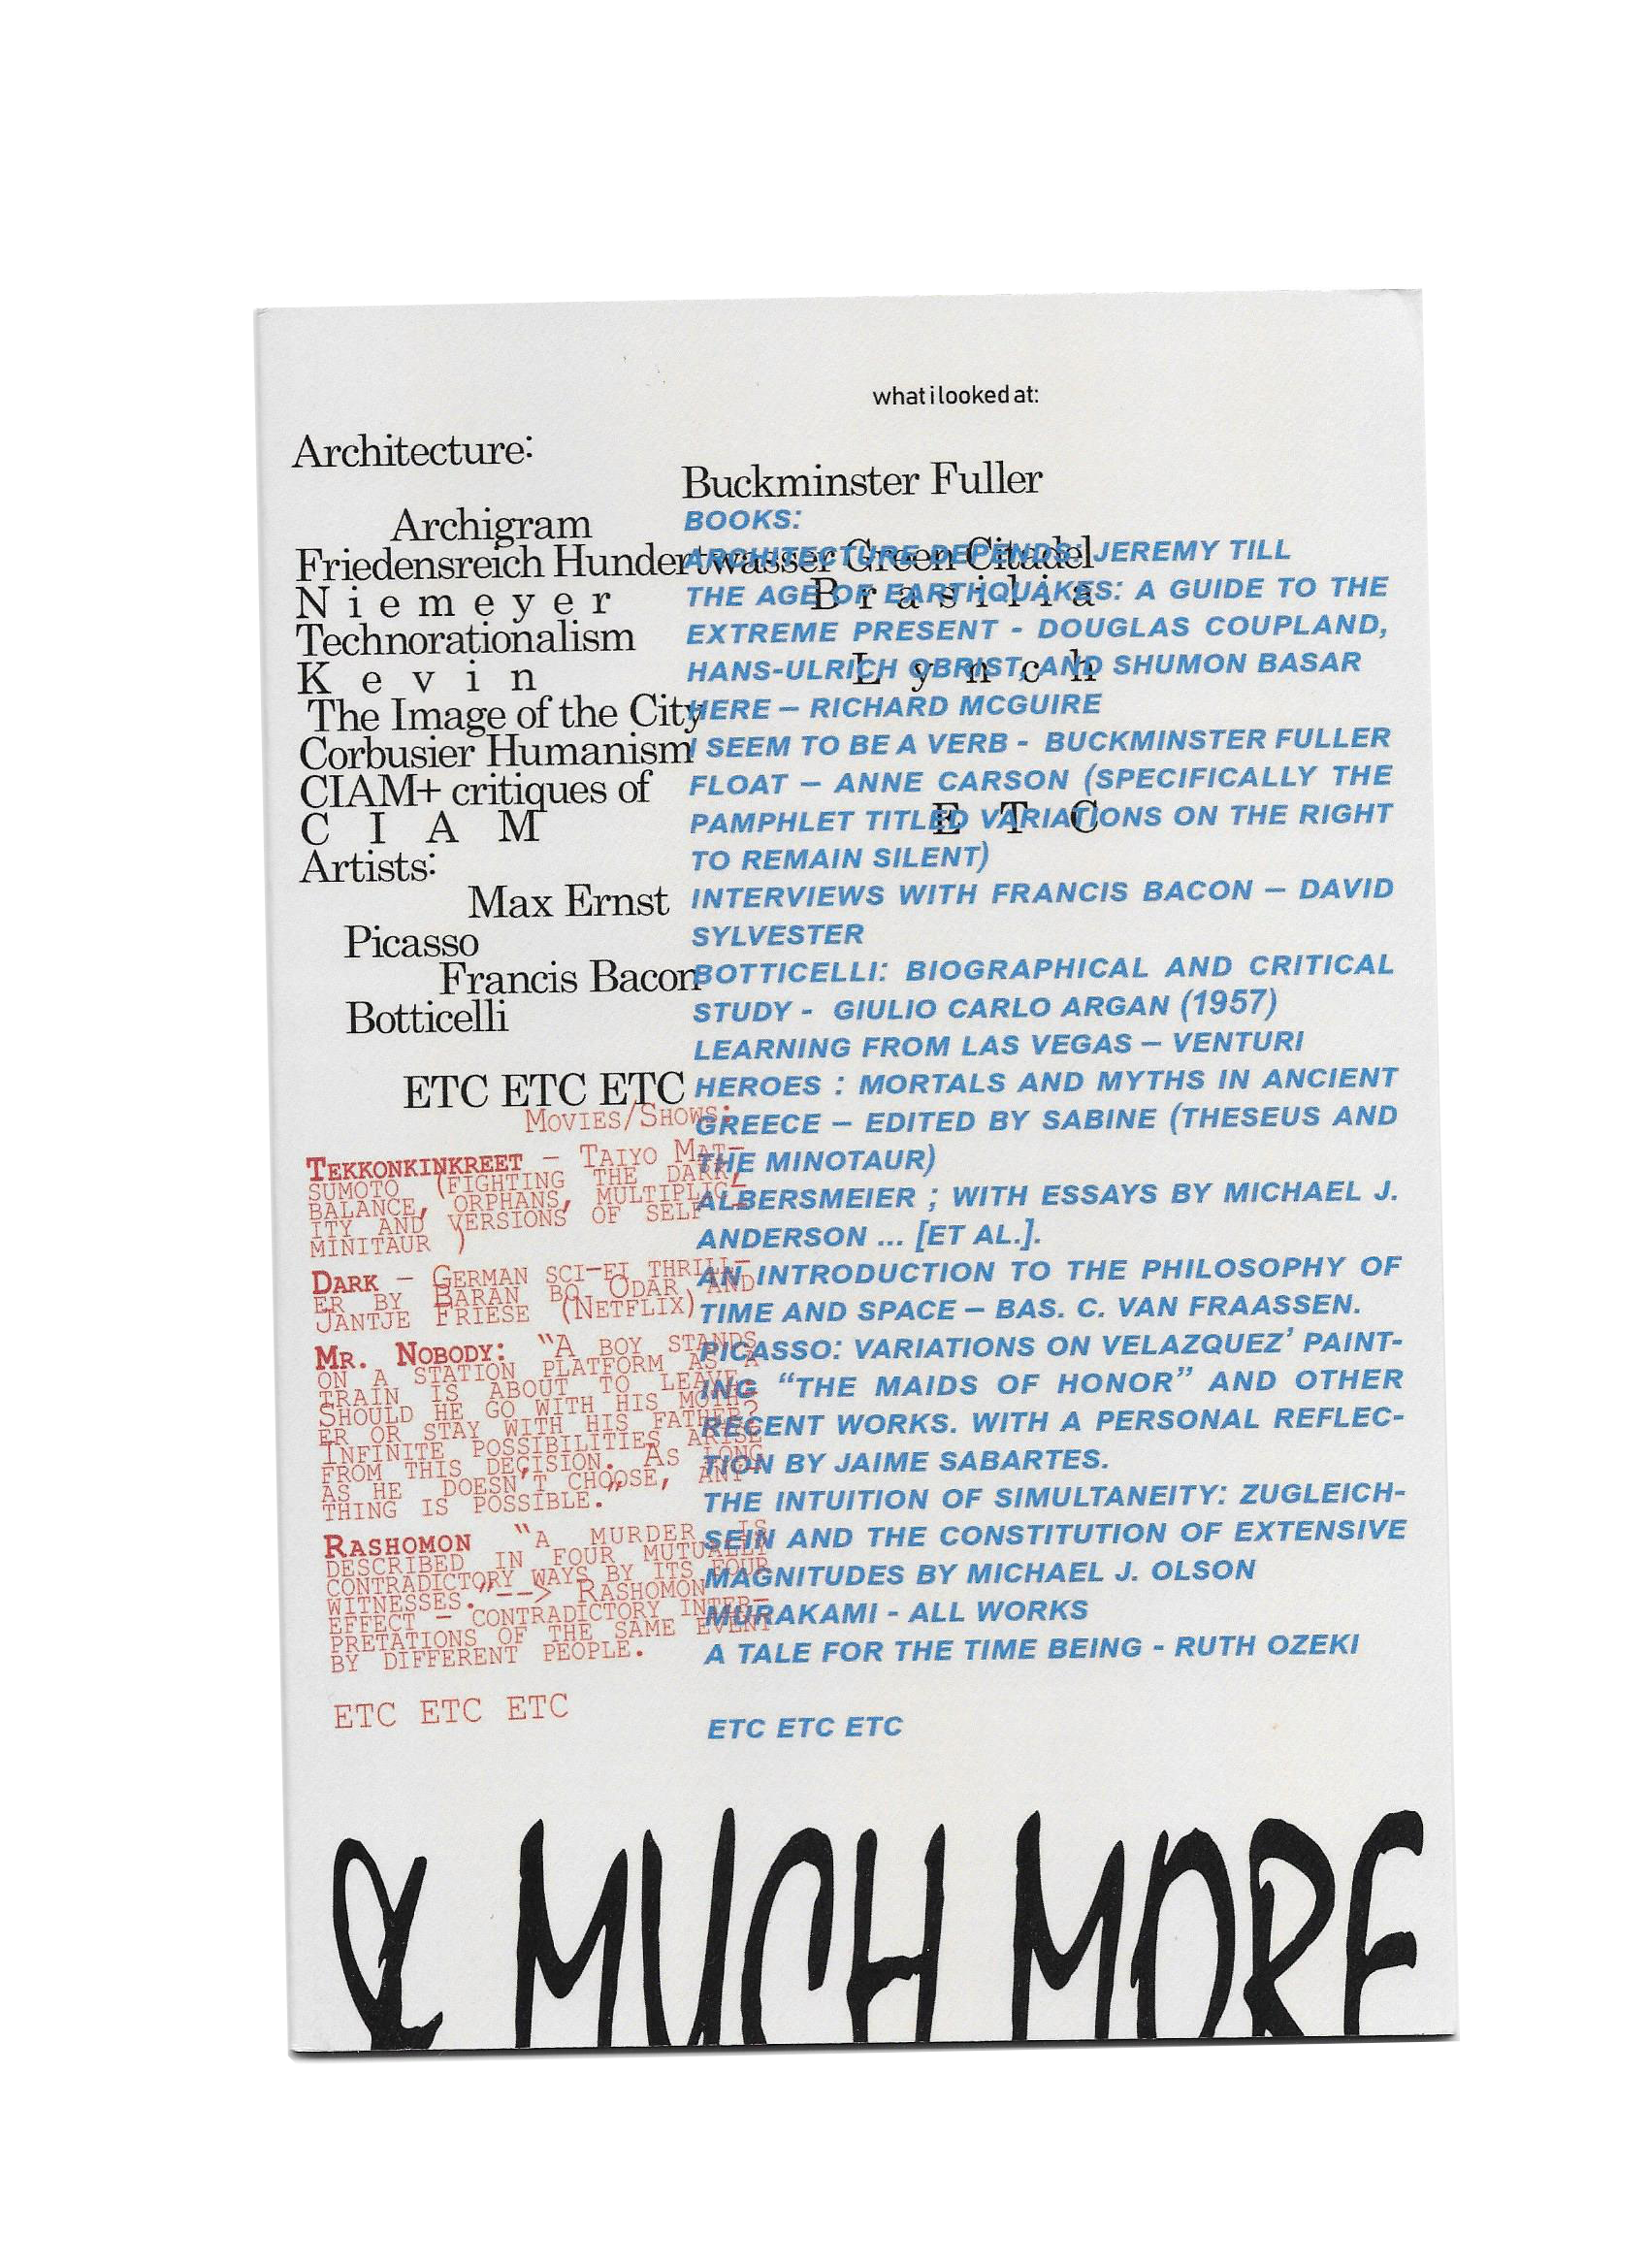 what i looked at:
Architecture:
Buckminster Fuller
Archigram
Friedensreich Hundertwasser Green Citadel
Niemeyer Brasilia
Technorationalism
Kevin Lynch
The Image of the City
Corbusier Humanism
CIAM+ critiques of
CIAM ETC
Artists:
Max Ernst
Picasso
Francis Bacon
Botticelli
ETC ETC ETC
BOOKS:
ARCHITECTURE DEPENDS: JEREMY TILL
THE AGE OF EARTHQUAKES: A GUIDE TO THE
EXTREME PRESENT - DOUGLAS COUPLAND,
HANS-ULRICH OBRIST, AND SHUMON BASAR
HERE – RICHARD MCGUIRE
I SEEM TO BE A VERB - BUCKMINSTER FULLER
FLOAT – ANNE CARSON (SPECIFICALLY THE
PAMPHLET TITLED VARIATIONS ON THE RIGHT
TO REMAIN SILENT)
INTERVIEWS WITH FRANCIS BACON – DAVID
SYLVESTER
BOTTICELLI: BIOGRAPHICAL AND CRITICAL
STUDY - GIULIO CARLO ARGAN (1957)
LEARNING FROM LAS VEGAS – VENTURI
HEROES : MORTALS AND MYTHS IN ANCIENT
GREECE – EDITED BY SABINE (THESEUS AND
THE MINOTAUR)
ALBERSMEIER ; WITH ESSAYS BY MICHAEL J.
ANDERSON ... [ET AL.].
AN INTRODUCTION TO THE PHILOSOPHY OF
TIME AND SPACE – BAS. C. VAN FRAASSEN.
PICASSO: VARIATIONS ON VELAZQUEZ' PAINT-
ING "THE MAIDS OF HONOR" AND OTHER
RECENT WORKS. WITH A PERSONAL REFLEC-
TION BY JAIME SABARTES.
THE INTUITION OF SIMULTANEITY: ZUGLEICH-
SEIN AND THE CONSTITUTION OF EXTENSIVE
MAGNITUDES BY MICHAEL J. OLSON
MURAKAMI - ALL WORKS
A TALE FOR THE TIME BEING - RUTH OZEKI
ETC ETC ETC
MOVIES/SHOWS:
TEKKONKINKREET – TAIYO MAT-
SUMOTO (FIGHTING THE DARK,
BALANCE, ORPHANS, MULTIPLIC-
ITY AND VERSIONS OF SELF –
MINITAUR )
DARK – GERMAN SCI-FI THRILL-
ER BY BARAN BO ODAR AND
JANTJE FRIESE (NETFLIX)
MR. NOBODY: "A BOY STANDS
ON A STATION PLATFORM AS A
TRAIN IS ABOUT TO LEAVE.
SHOULD HE GO WITH HIS MOTH-
ER OR STAY WITH HIS FATHER?
INFINITE POSSIBILITIES ARISE
FROM THIS DECISION. AS LONG
AS HE DOESN'T CHOOSE, ANY-
THING IS POSSIBLE."
RASHOMON "A MURDER IS
DESCRIBED IN FOUR MUTUALLY
CONTRADICTORY WAYS BY ITS FOUR
WITNESSES." --> RASHOMON
EFFECT – CONTRADICTORY INTER-
PRETATIONS OF THE SAME EVENT
BY DIFFERENT PEOPLE.
ETC ETC ETC
& MUCH MORE